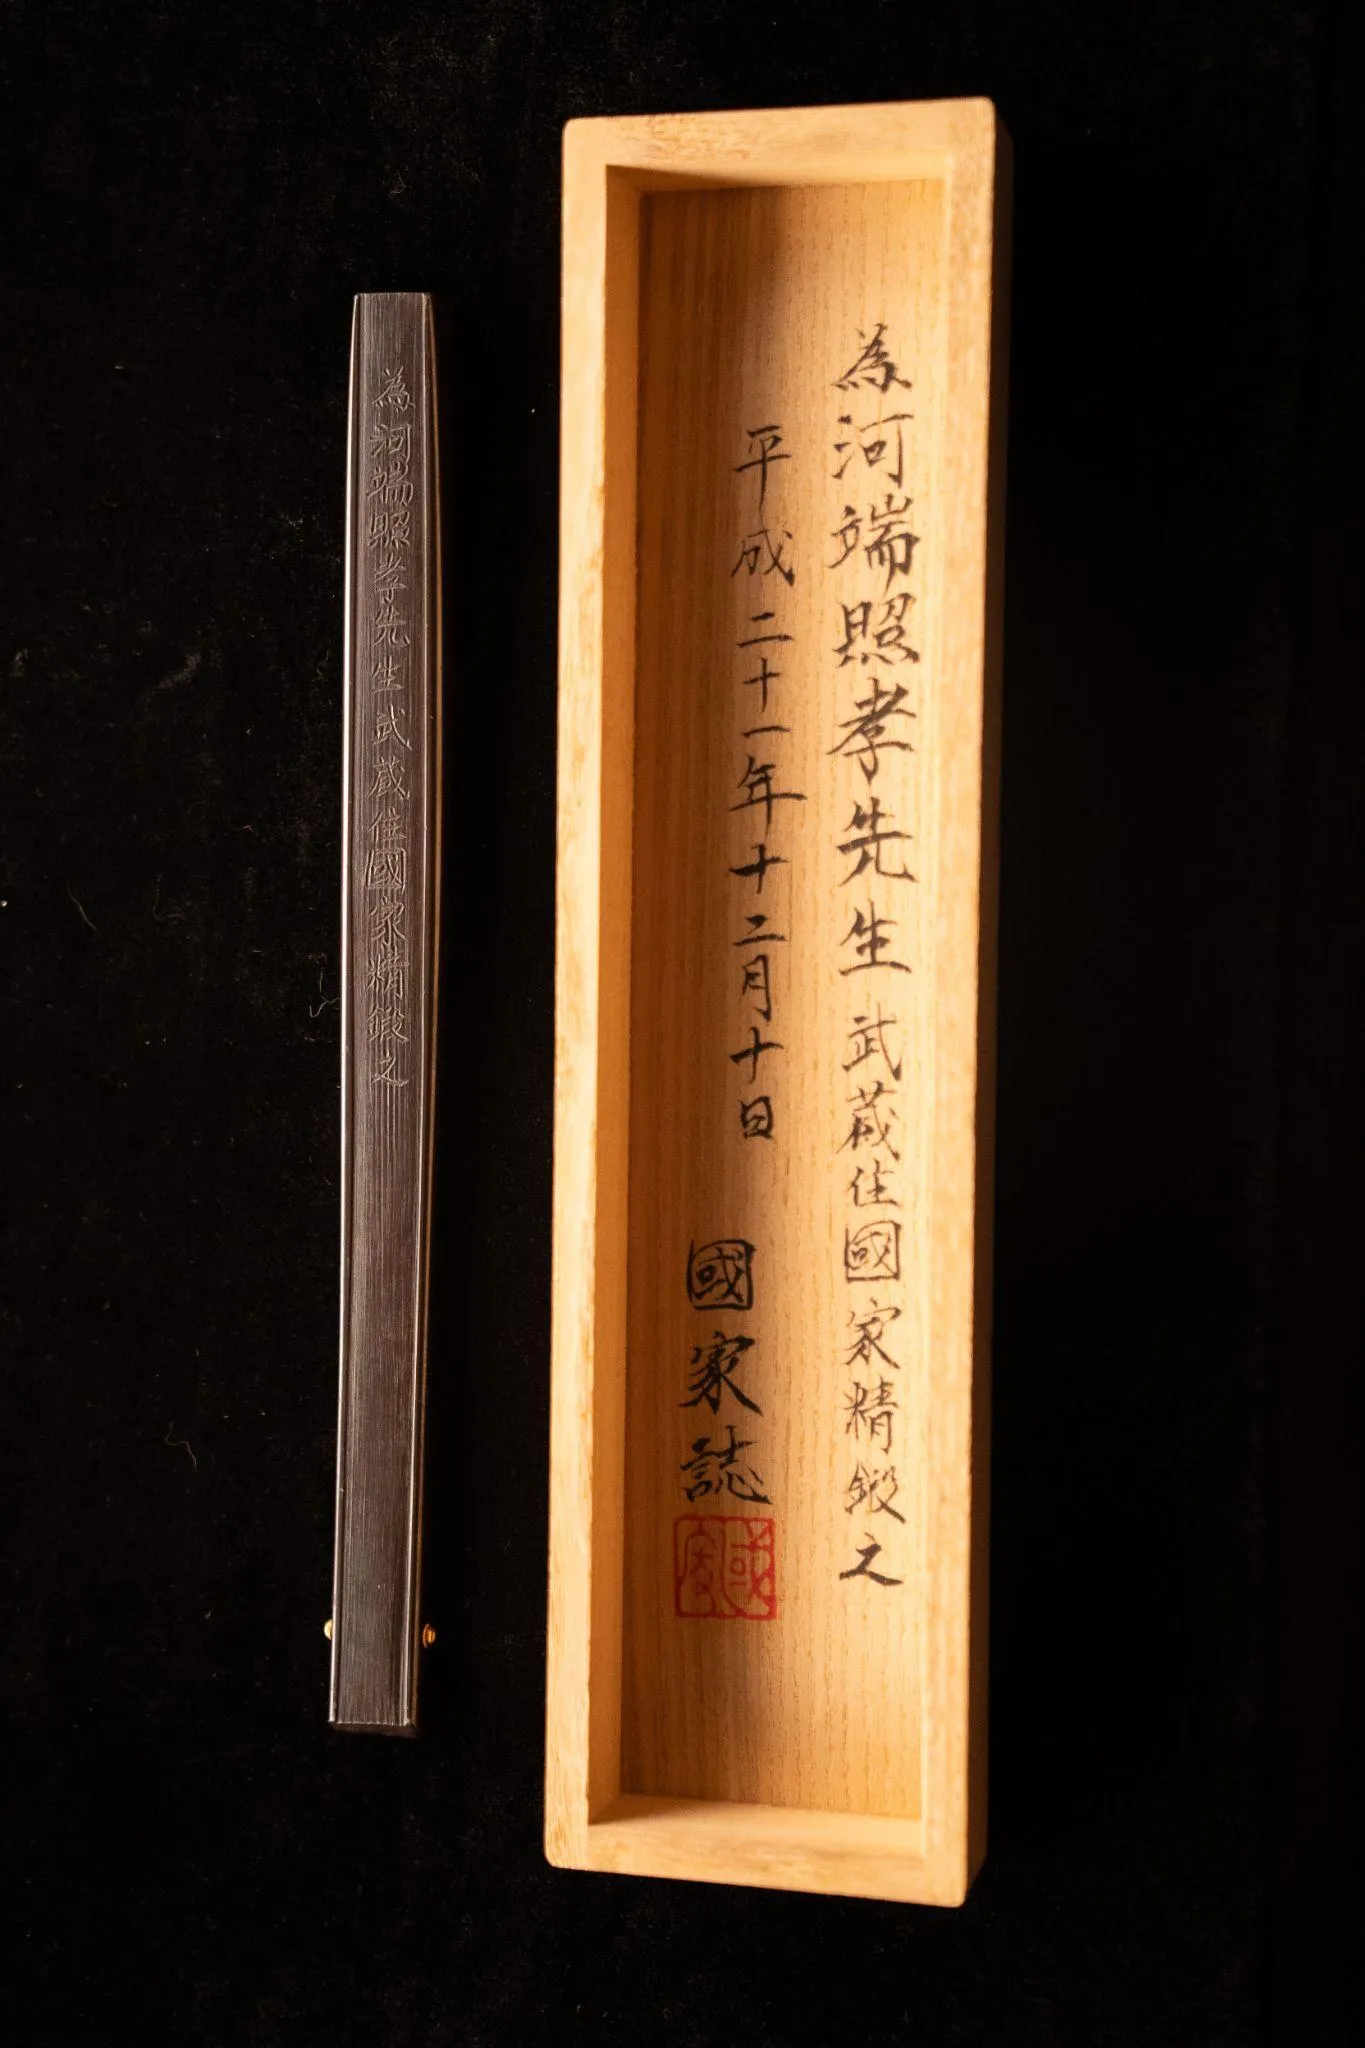 為河端照孝先生武蔵住國家精鍛之
平成二十一年十二月十日
國家誌
國家
為河端照孝先生武蔵住國家精鍛之